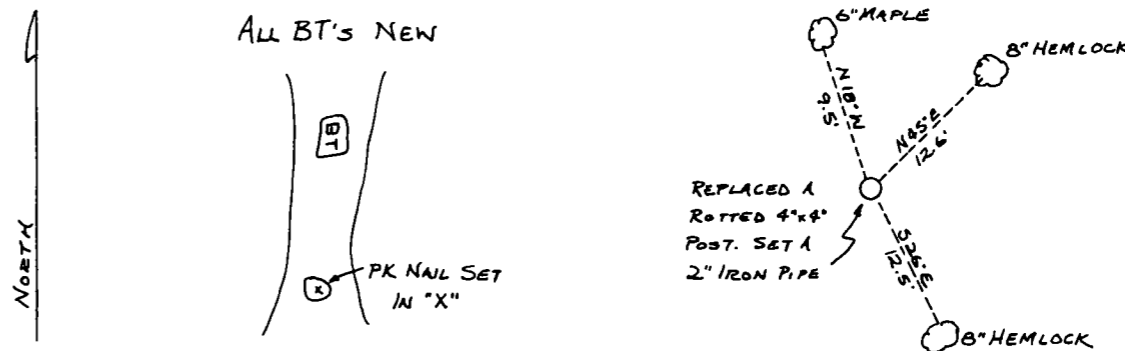 ALL BT's NEW
NORTH
BT
x
PK NAIL SET
IN "X"
6" MAPLE
8" HEMLOCK
N18°W
9.5'
N45°E
12.6'
REPLACED A
ROTTED 4"x4"
POST. SET A
2" IRON PIPE
S26°E
12.5'
8" HEMLOCK